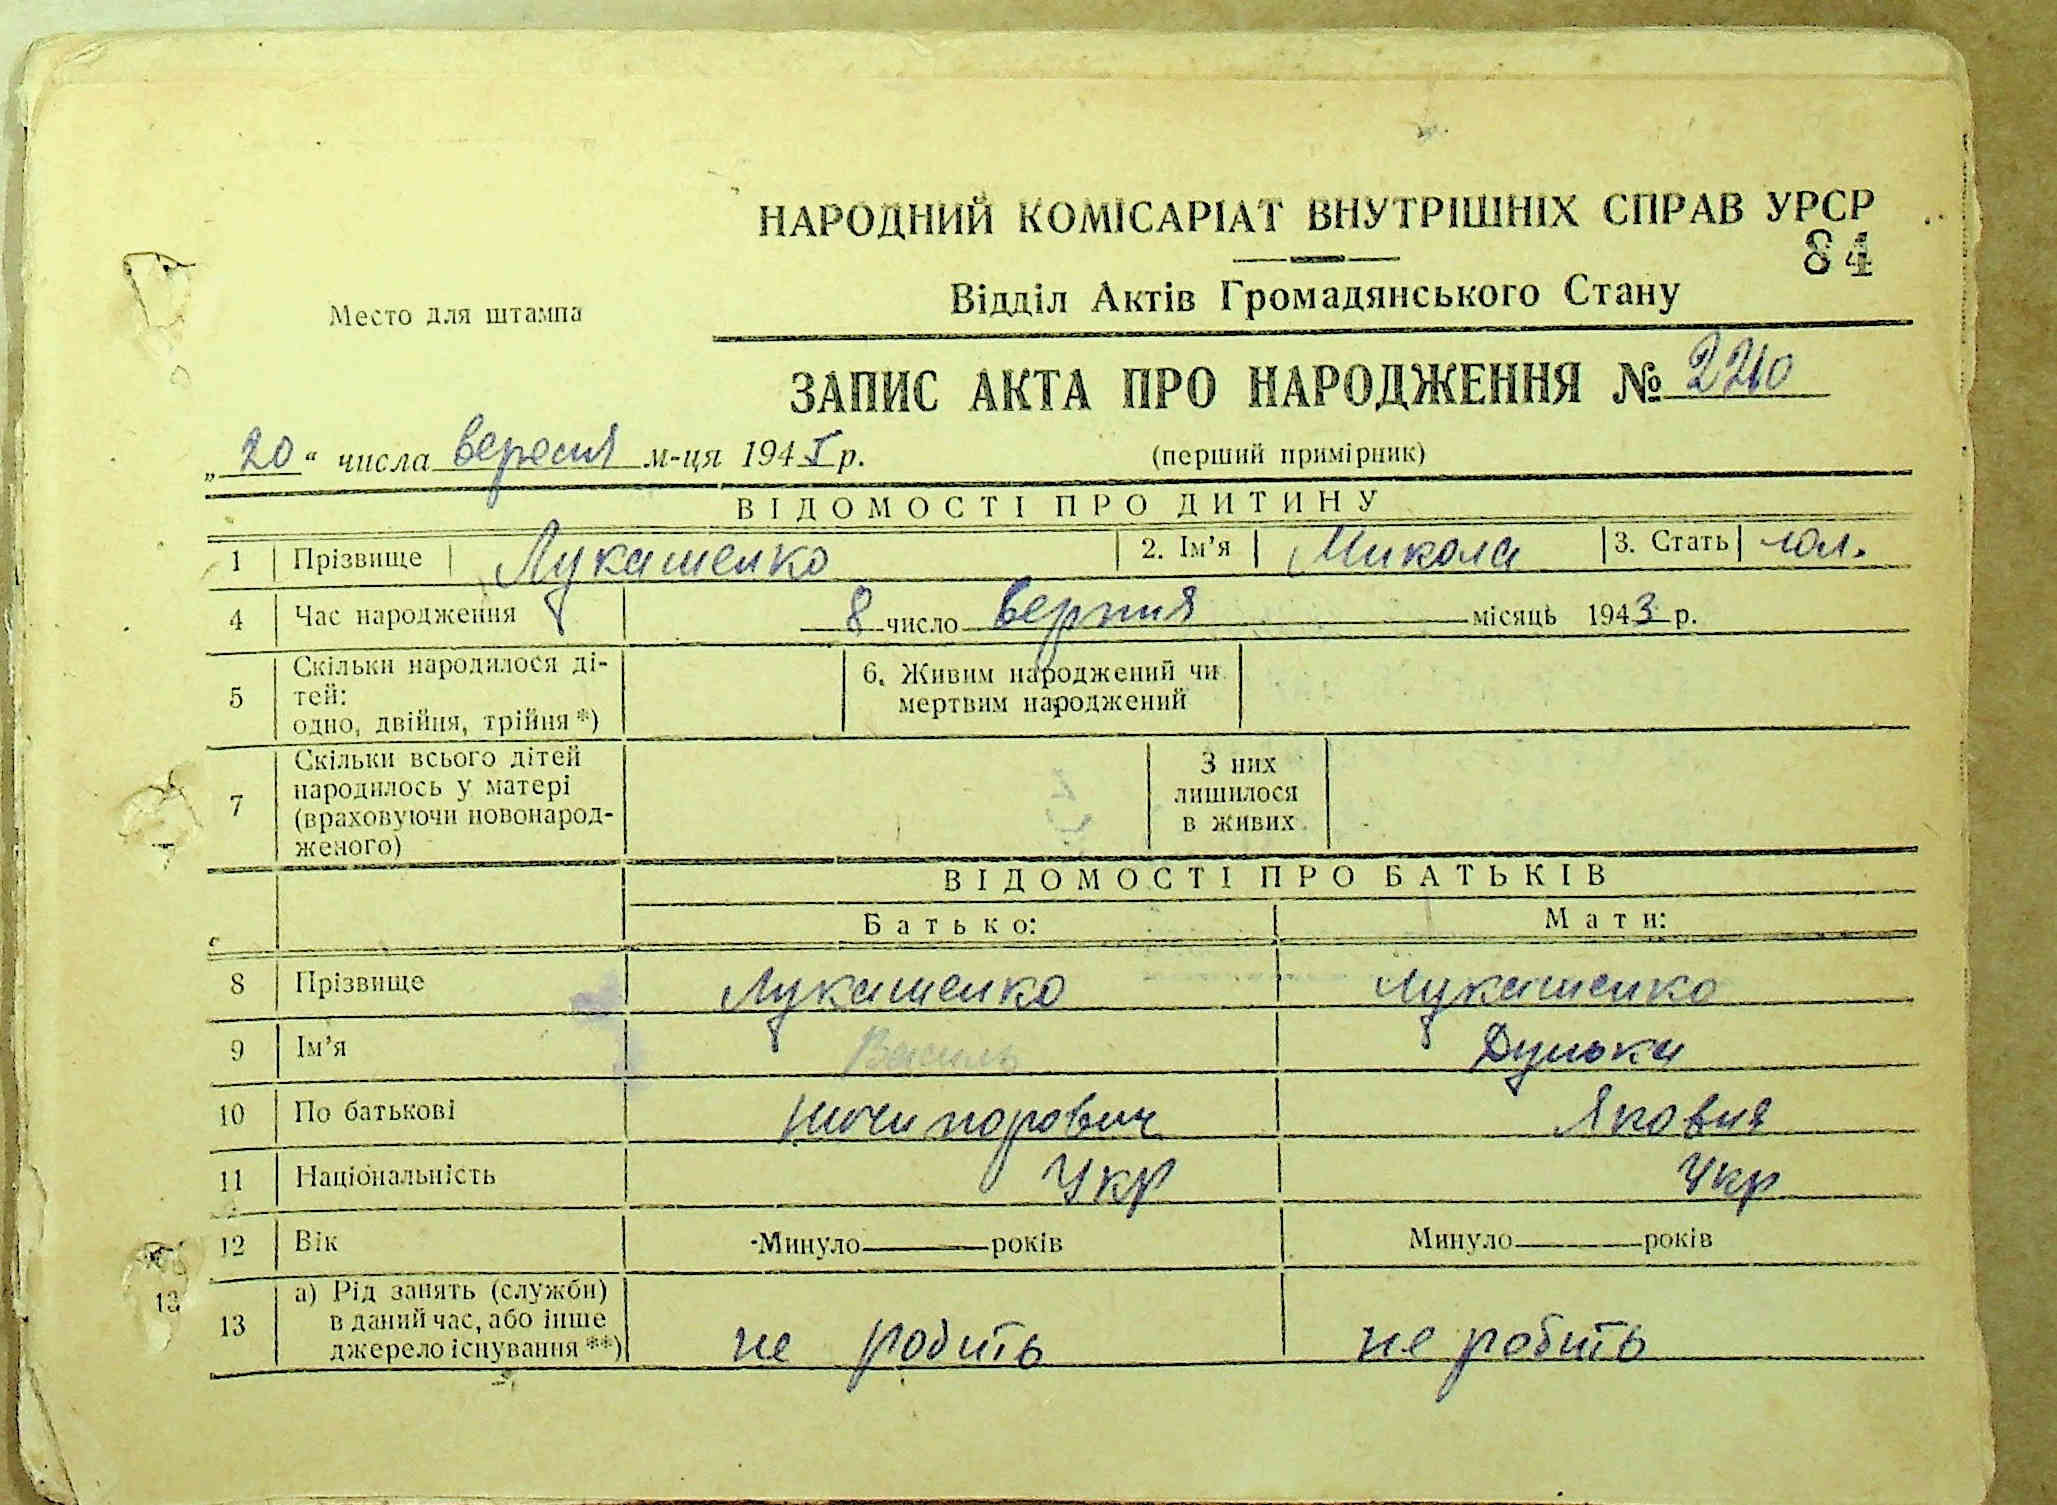 НАРОДНИЙ КОМІСАРІАТ ВНУТРІШНІХ СПРАВ УРСР
84
Место для штампа
Відділ Актів Громадянського Стану
ЗАПИС АКТА ПРО НАРОДЖЕННЯ №
„20“ числа м-ця 194 р.
(перший примірник)
ВІДОМОСТІ ПРО ДИТИНУ
1 Прізвище Лукашенко 2. Ім'я Микола 3. Стать чол.
4 Час народження 8 число місяць 1943 р.
5 Скільки народилося ді-
тей:
одно, двійня, трійня *)
6. Живим народжений чи
мертвим народжений
7 Скільки всього дітей
народилось у матері
(враховуючи новонарод-
женого)
З них
лишилося
в живих
ВІДОМОСТІ ПРО БАТЬКІВ
Батько: Мати:
8 Прізвище Лукашенко Лукашенко
9 Ім'я Василь Дунька
10 По батькові Ничипорович Яковна
11 Національність Укр Укр
12 Вік Минуло років Минуло років
13 а) Рід занять (служби)
в даний час, або інше
джерело існування **)
не робить не робить